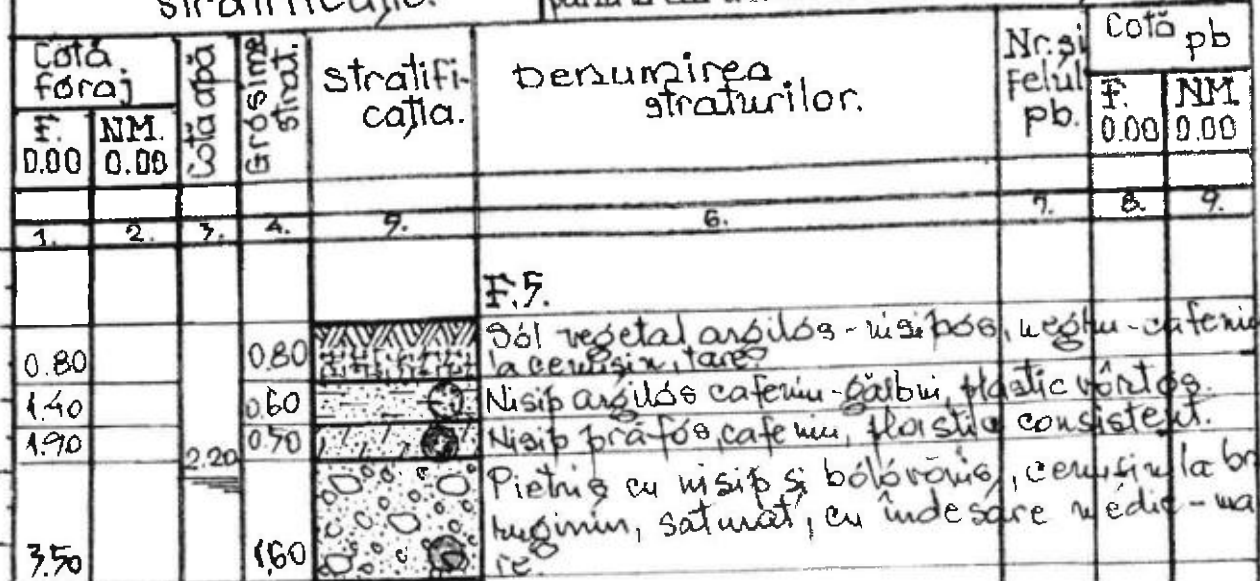 stratificație.
Cotă foraj
F. 0.00
NM. 0.00
Cotă apă
Grosime strat.
stratifi-
cația.
Denumirea
straturilor.
Nr. și
Felul
pb.
Cotă pb
F. 0.00
NM 0.00
1. 2. 3. 4. 5. 6. 7. 8. 9.
F.5.
0.80 0.80 Sol vegetal argilos - nisipos, negru - cafeniu
la cenușiu, tare
1.40 0.60 Nisip argilos cafeniu - gălbui, plastic vârtos.
1.90 0.50 Nisip prăfos, cafeniu, plastic consistent.
2.20
Pietriș cu nisip și bolovăniș, cenușiu la
ruginiu, saturat, cu îndesare medie - ma
3.50 1.60 re.